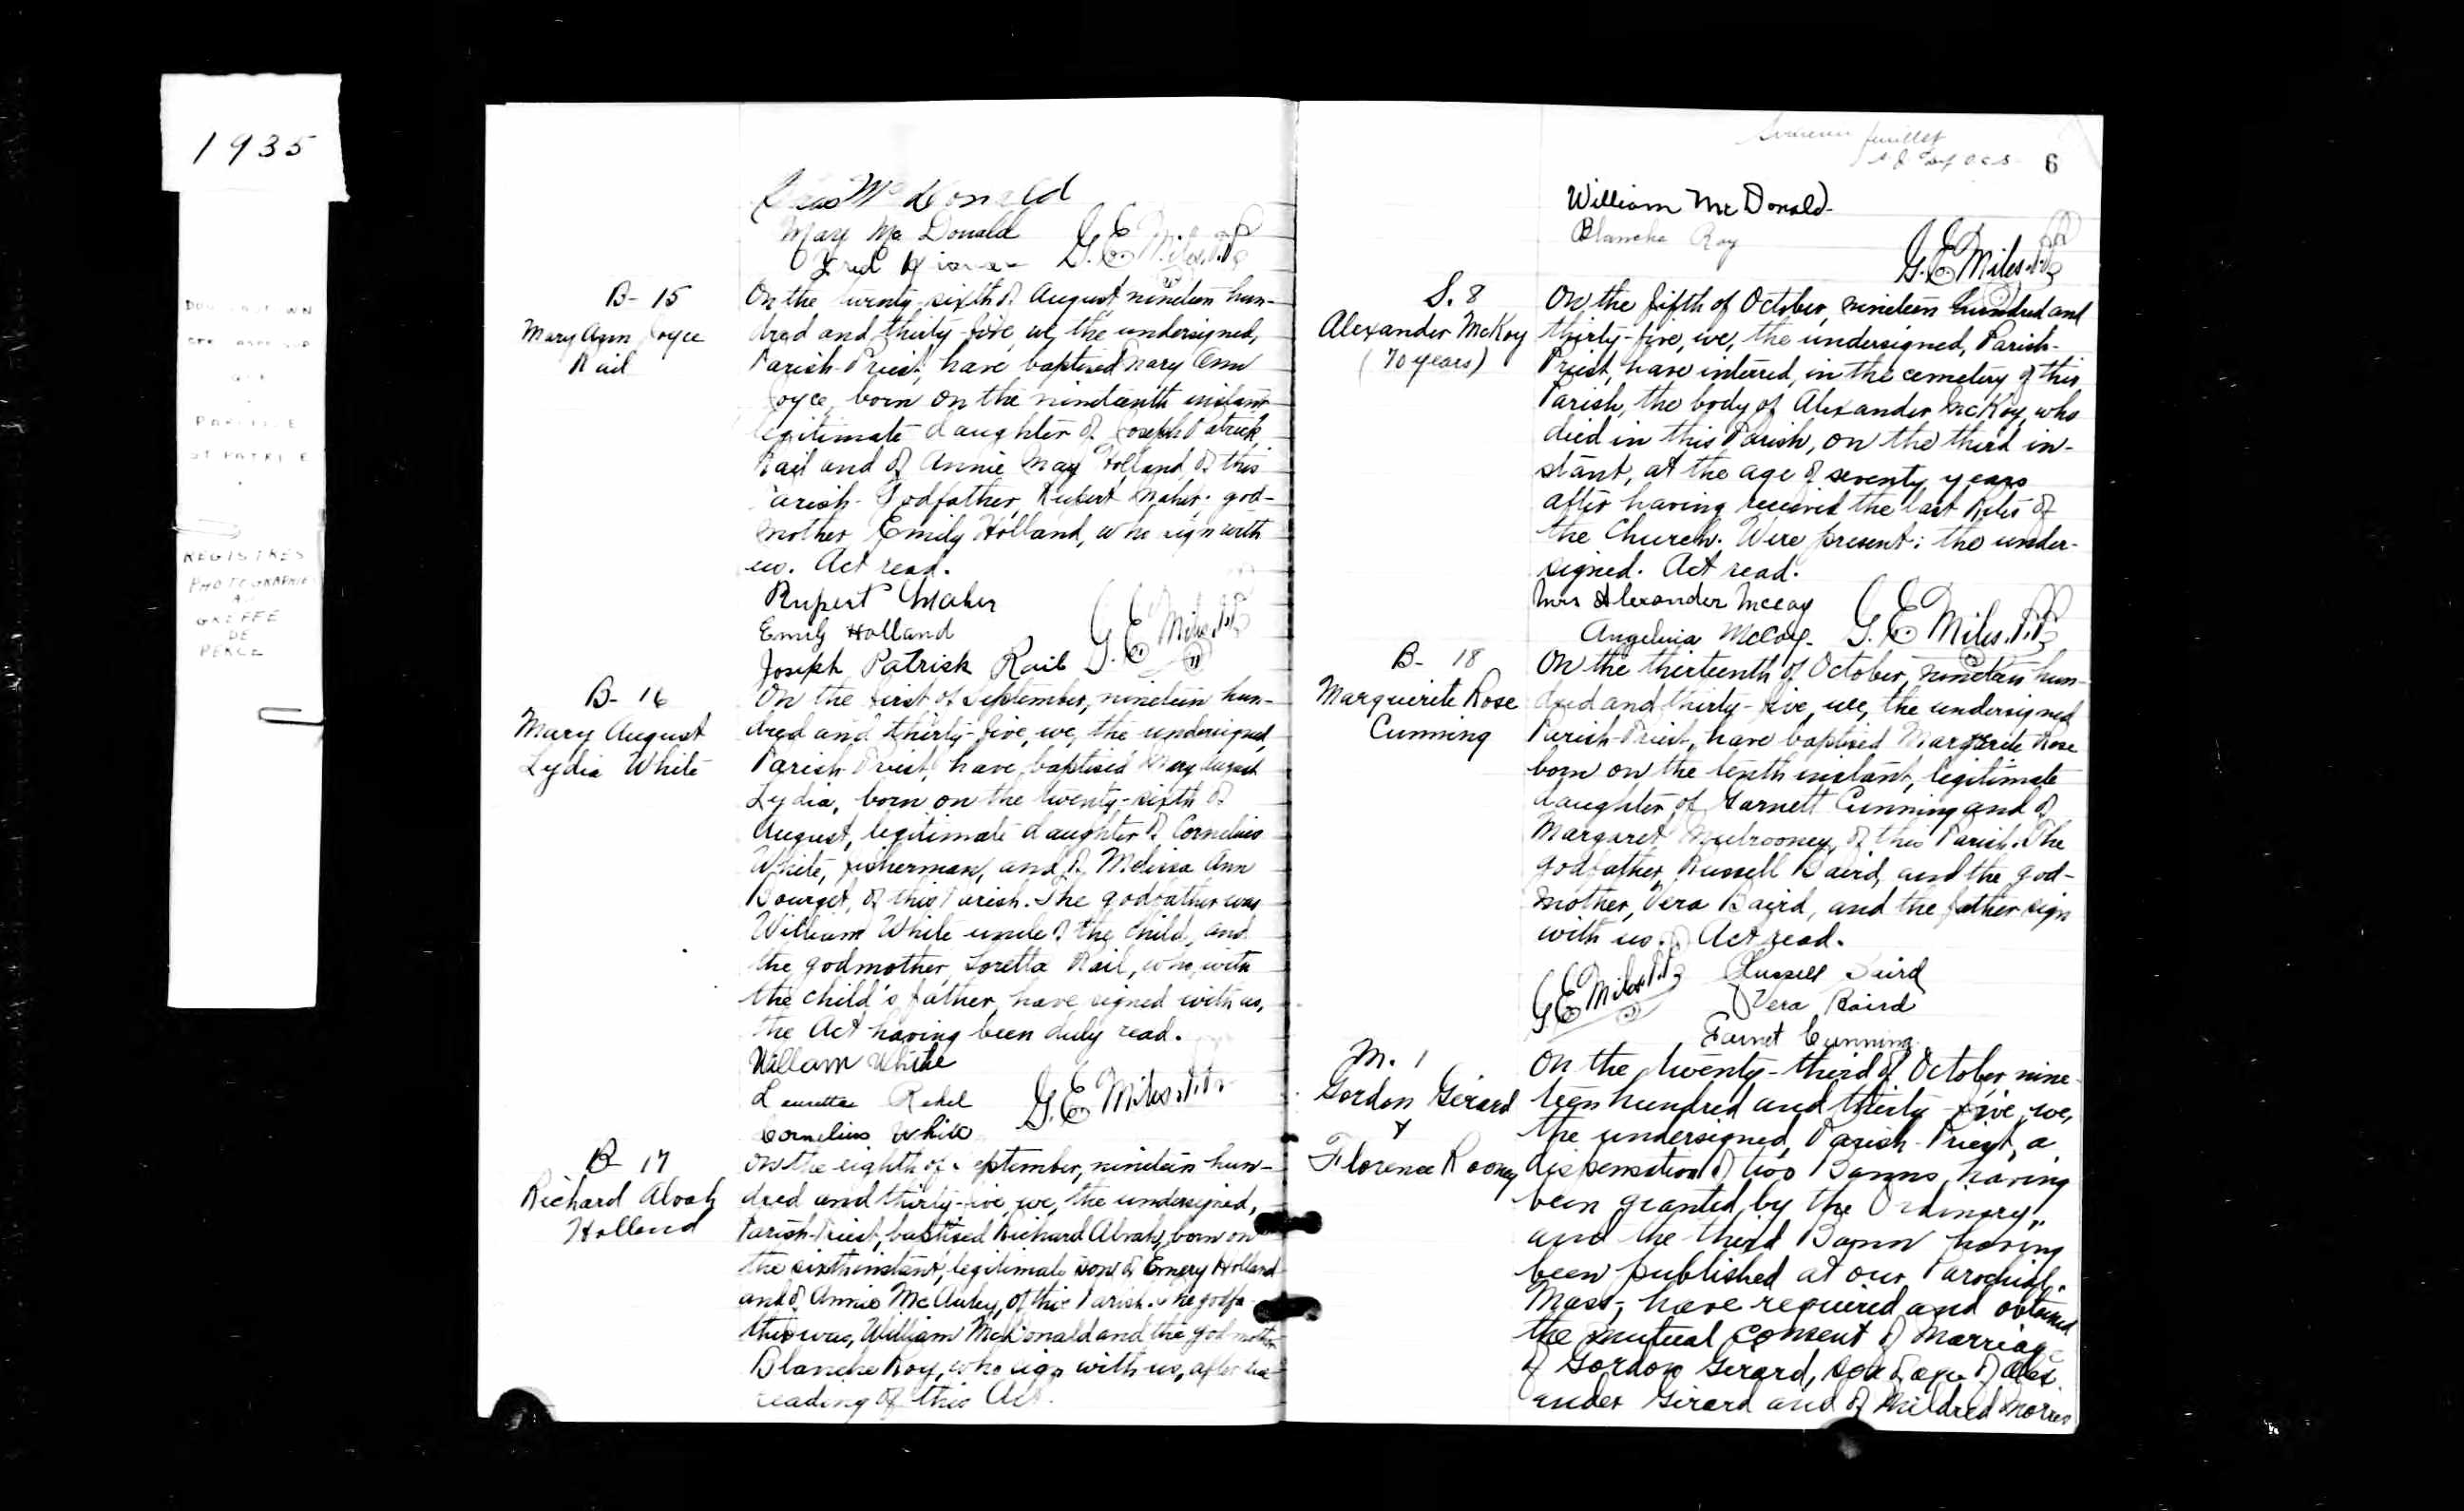 1935
PAROISSE
ST PATRICE
REGISTRES
PHOTOGRAPHIES
AU
GREFFE
DE
PERCE
Chas McDonald
Mary Mc Donald
Fred
G. E. Miles. P.P.
B- 15
Mary Ann Joyce
Rail
On the twenty-sixth of August, nineteen hun-
dred and thirty-five, we, the undersigned,
Parish-Priest, have baptised Mary Ann
Joyce, born on the nineteenth instant
legitimate daughter of Joseph Patrick
Rail and of Annie May Holland of this
Parish. Godfather, Rupert Maher; god-
mother Emily Holland, who sign with
us. Act read.
Rupert Maher
Emily Holland
Joseph Patrick Rail
G. E. Miles. P.P.
B- 16
Mary August
Lydia White
On the first of September, nineteen hun-
dred and thirty-five, we, the undersigned,
Parish-Priest, have baptised Mary August
Lydia, born on the twenty-sixth of
August, legitimate daughter of Cornelius
White, fisherman, and of Melissa Ann
Bourget, of this Parish. The godfather was
William White uncle of the child, and
the godmother, Loretta Rail, who, with
the child's father, have signed with us,
the Act having been duly read.
William White
Lauretta Rehel
Cornelius White
G. E. Miles. P.P.
B- 17
Richard Alvah
Holland
On the eighth of September, nineteen hun-
dred and thirty-five, we, the undersigned,
Parish-Priest, baptised Richard Alvah, born on
the sixth instant, legitimate son of Emery Holland
and of Annie McAuley, of this Parish. The godfa-
ther was, William McDonald and the godmother
Blanche Roy, who sign with us, after the
reading of this Act.
feuillet
6
William McDonald
Blanche Roy
G. E. Miles. P.P.
S. 8
Alexander McKoy
(70 years)
On the fifth of October, nineteen hundred and
thirty-five, we, the undersigned, Parish-
Priest, have interred, in the cemetery of this
Parish, the body of Alexander McKoy, who
died in this Parish, on the third in-
stant, at the age of seventy years
after having received the last Rites of
the Church. Were present: the under-
signed. Act read.
Mrs Alexander McCoy
Angelina McCoy.
G. E. Miles. P.P.
B- 18
Marguerite Rose
Cunning
On the thirteenth of October, nineteen hun-
dred and thirty-five, we, the undersigned
Parish-Priest, have baptised Margrete Rose
born on the tenth instant, legitimate
daughter of Garnett Cunning and of
Margaret Mulrooney, of this Parish. The
godfather, Russell Baird, and the god-
mother, Vera Baird, and the father sign
with us. Act read.
G. E. Miles P.P.
Russell Baird
Vera Baird
Garnet Cunning
M. 1
Gordon Gerard
&
Florence Rooney
On the twenty-third of October, nine-
teen hundred and thirty-five, we,
the undersigned, Parish-Priest, a
dispensation of two Banns having
been granted by the Ordinary,
and the third Bann having
been published at our Parochial
Mass, have required and obtained
the mutual consent of marriage
of Gordon Gerard, son of age of Alex-
ander Gerard and of Mildred Morris